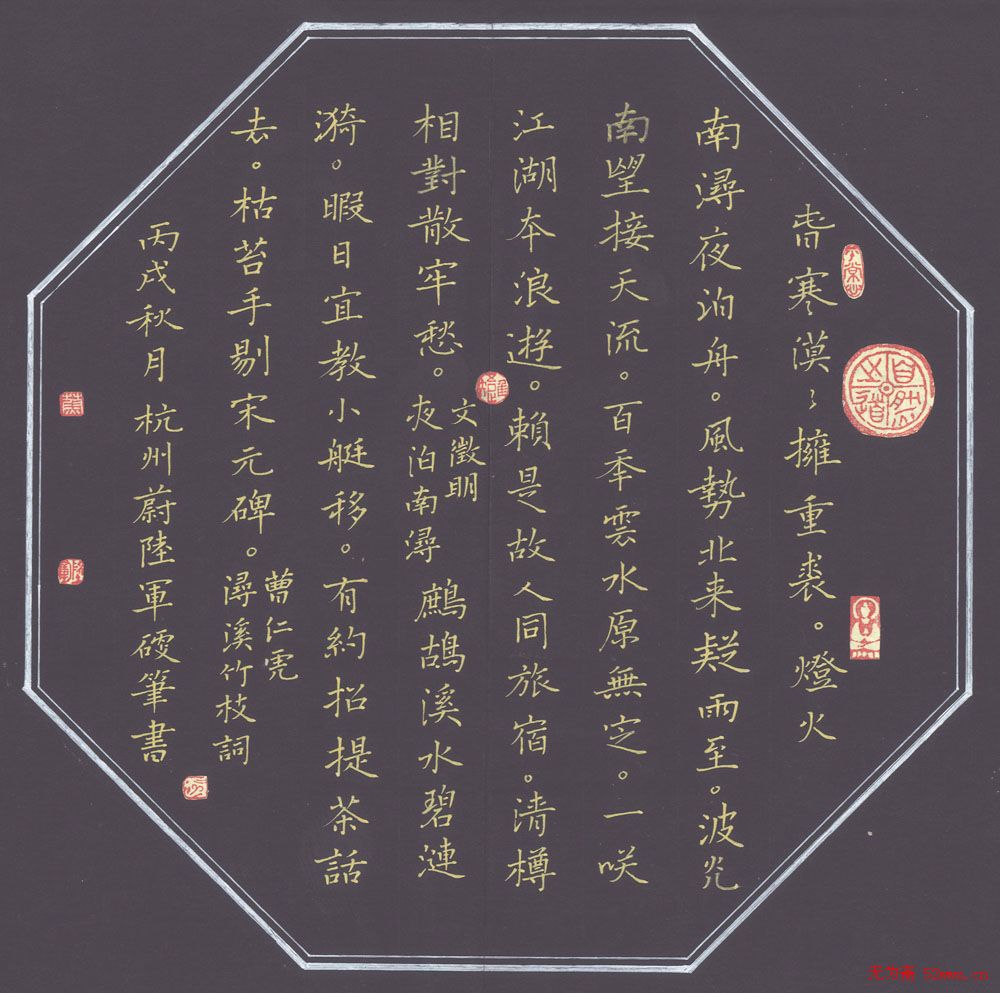 旾寒漠〻擁重裘。燈火
南潯夜泊舟。風勢北来疑雨至。波光
南朢接天流。百年雲水原無定。一咲
江湖本浪遊。賴是故人同旅宿。清樽
相對散牢愁。文徵明夜泊南潯 鷓鴣溪水碧漣
漪。暇日宜教小艇移。有約招提茶話
去。枯苔手剔宋元碑。曹仁虎潯溪竹枝詞
丙戌秋月杭州蔚陸軍硬筆書
自然之道